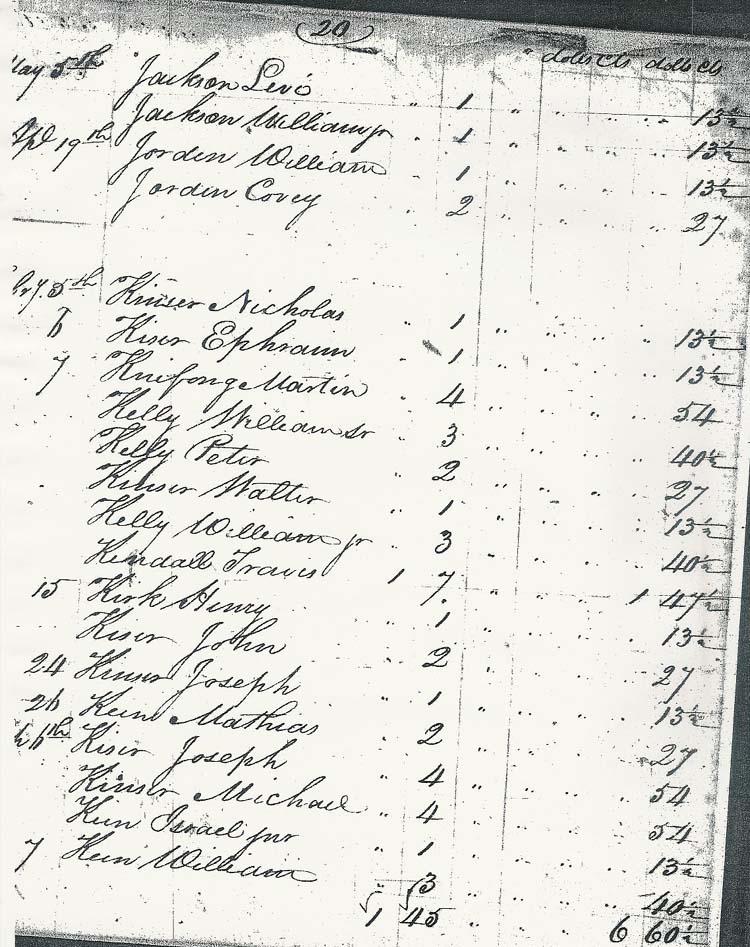 20
dolls cts dolls cts
May 5th Jackson Levi " 1 " " " " 13½
Jackson William jr " 1 " " " " 13½
Apl 19th Jorden William " 1 " " " " 13½
Jorden Covey " 2 " " " " 27
5th Kinser Nicholas " 1 " " " " 13½
6 Kiser Ephraim " 1 " " " " 13½
7 Knifong Martin " 4 " " " " 54
Kelly William Sr " 3 " " " " 40½
Kelly Peter " 2 " " " " 27
Kinser Walter " 1 " " " " 13½
Kelly William jr " 3 " " " " 40½
Kendall Travis 1 7 " " " 1 47½
15 Kirk Henry " 1 " " " " 13½
Kiser John " 2 " " " " 27
24 Kinser Joseph " 1 " " " " 13½
26 Keen Mathias " 2 " " " " 27
6th Kiser Joseph " 4 " " " " 54
Kinser Michael " 4 " " " " 54
Keen Israel jnr " 1 " " " " 13½
7 Keen William " 3 " " " " 40½
1 45 " " " 6 60½